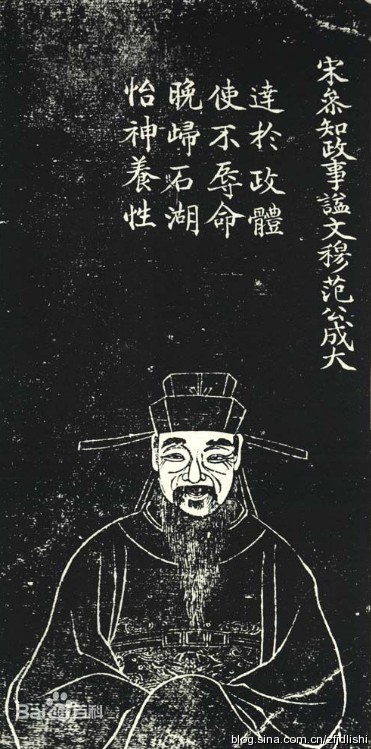 宋叅知政事謚文穆范公成大
達於政體
使不辱命
晚歸石湖
怡神養性
Bai百科
blog.sina.com.cn/zfjdlishi